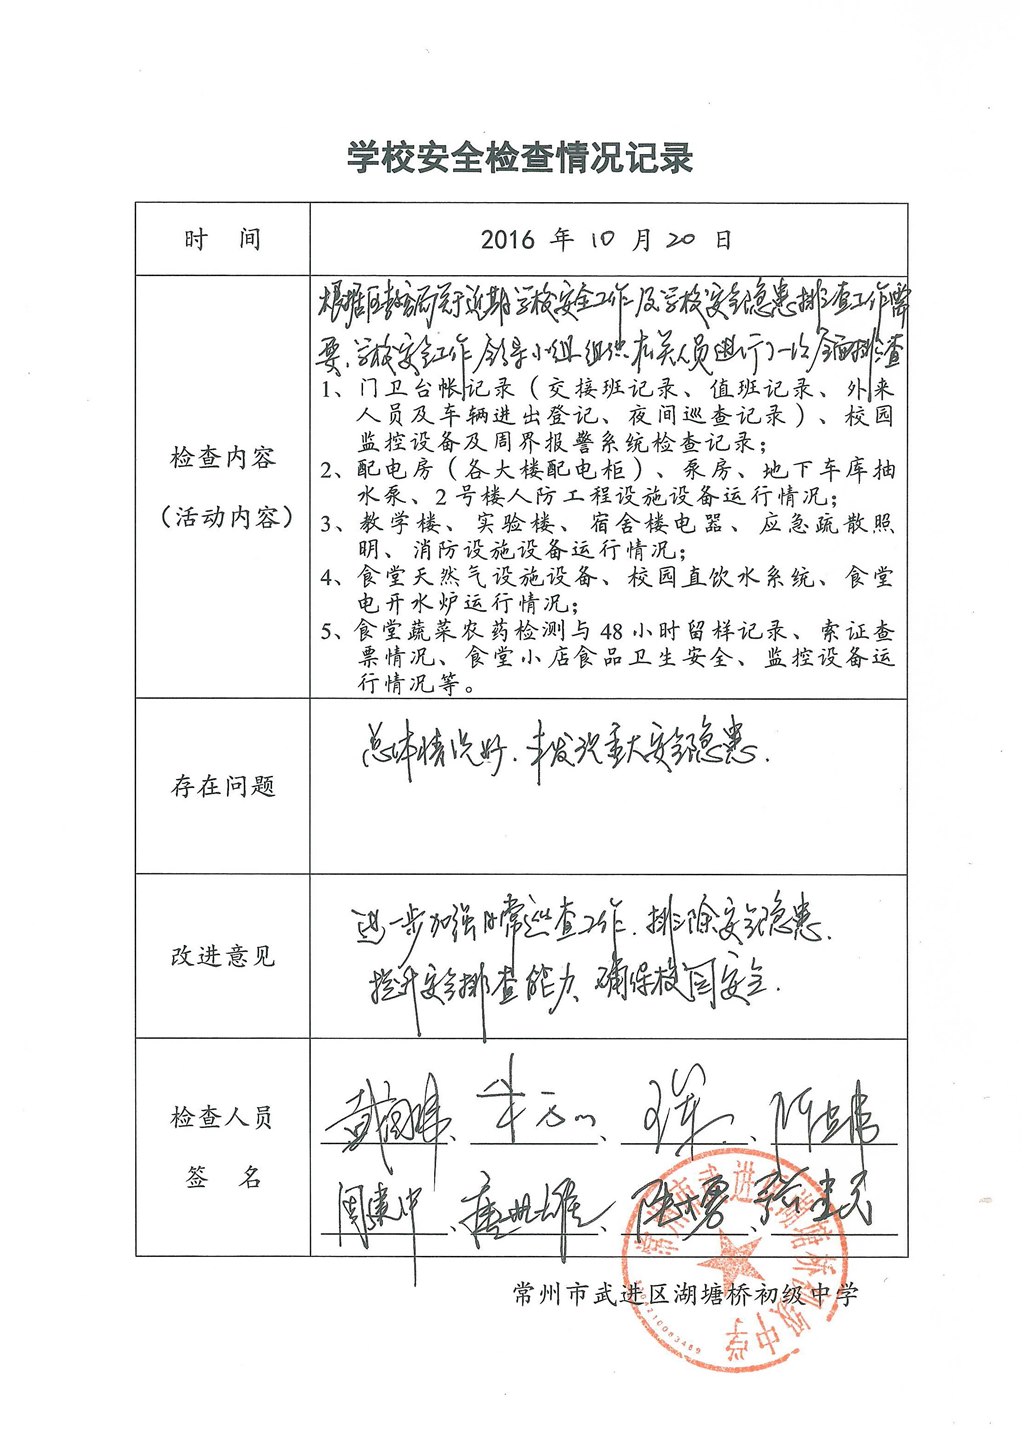 学校安全检查情况记录
时 间
2016 年 10 月 20 日
检查内容
（活动内容）
根据区教育局关于近期学校安全工作及学校安全隐患排查工作需
要,学校安全工作领导小组组织有关人员进行了一次全面排查
1、门卫台帐记录（交接班记录、值班记录、外来
人员及车辆进出登记、夜间巡查记录）、校园
监控设备及周界报警系统检查记录；
2、配电房（各大楼配电柜）、泵房、地下车库抽
水泵、2 号楼人防工程设施设备运行情况；
3、教学楼、实验楼、宿舍楼电器、应急疏散照
明、消防设施设备运行情况；
4、食堂天然气设施设备、校园直饮水系统、食堂
电开水炉运行情况；
5、食堂蔬菜农药检测与 48 小时留样记录、索证查
票情况、食堂小店食品卫生安全、监控设备运
行情况等。
存在问题
总体情况好.未发现重大安全隐患.
改进意见
进一步加强日常巡查工作.排除安全隐患.
提升安全排查能力、确保校园安全.
检查人员
签 名
周建中、
常州市武进区湖塘桥初级中学
常州市武进区湖塘桥初级中学